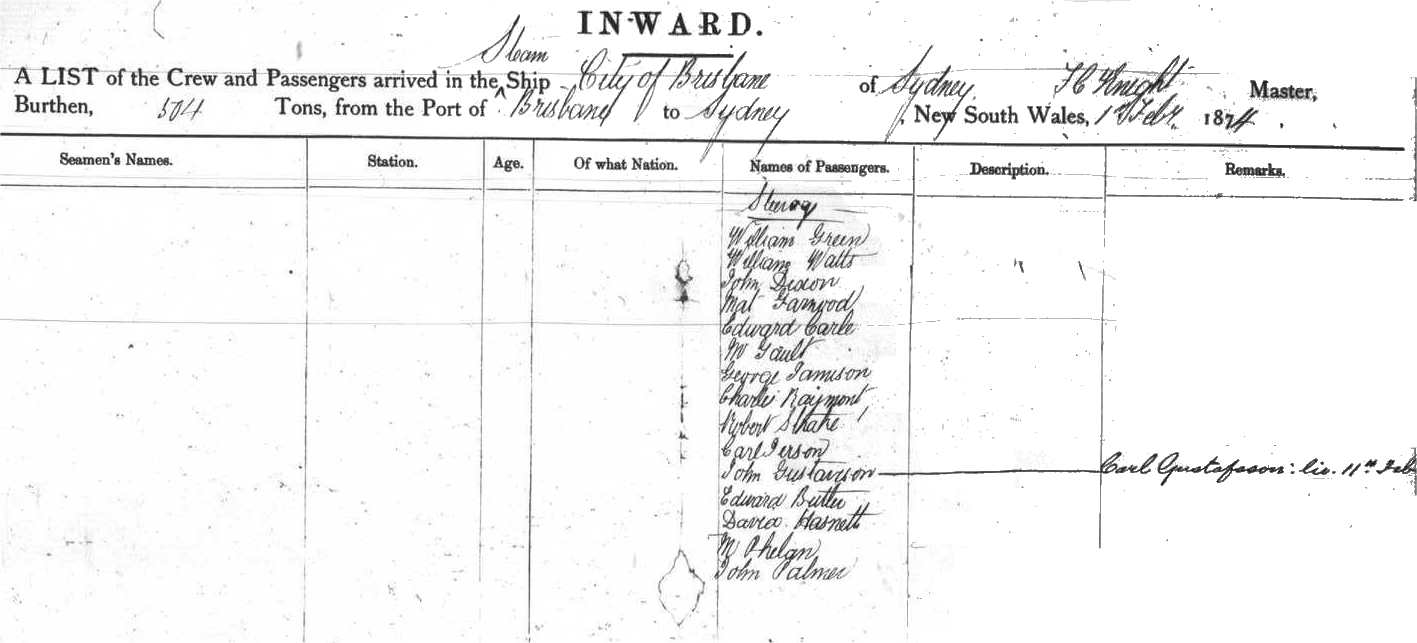 INWARD.
Steam
A LIST of the Crew and Passengers arrived in the Ship City of Brisbane of Sydney F C Knight Master,
Burthen, 504 Tons, from the Port of Brisbane to Sydney, New South Wales, 1st Feby. 1874
Seamen's Names. Station. Age. Of what Nation. Names of Passengers. Description. Remarks.
Steerage
William Green
William Watts
John Dixon
Mat Farmood
Edward Carle
M Gault
George Jamison
Charlie Raymont
Robert
Carl Ierson
John Gustavson Carl Gustafsson: liv. 11th Feb
Edward Butler
David Hasnett
M Phelan
John Palmer